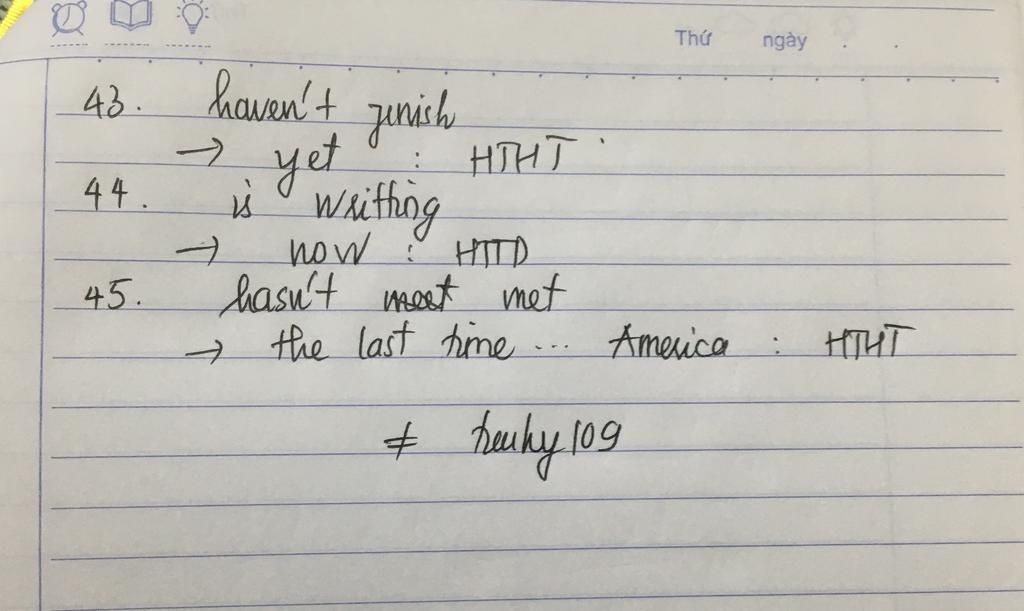 Thứ ngày . .
43. haven't finish
→ yet : HTHT
44. is writting
→ now : HTTD
45. hasn't meet met
→ the last time ... America : HTHT
≠